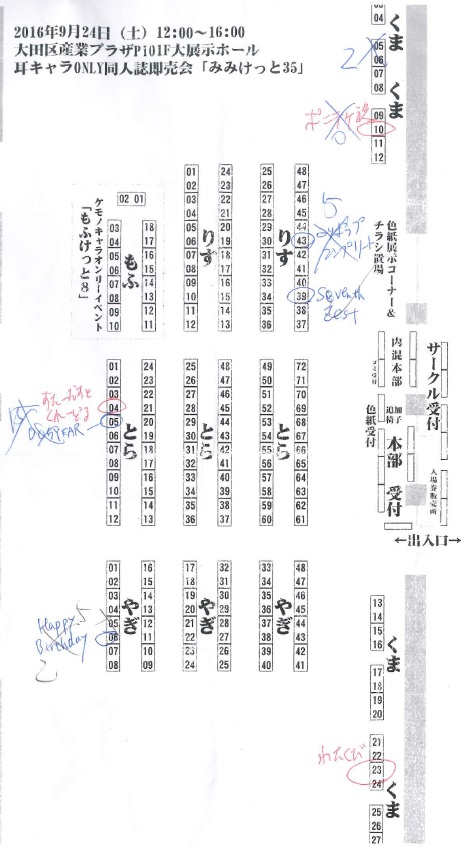 2016年9月24日（土）12:00～16:00
大田区産業プラザPiO1F大展示ホール
耳キャラONLY同人誌即売会「みみけっと35」
くま
03
04
05
06
07
08
くま
09
10
11
12
2
ケモノキャラオンリーイベント
「もふけっと8」
02 01
もふ
03 18
04 17
05 16
06 15
07 14
08 13
09 12
10 11
りす
01 24
02 23
03 22
04 21
05 20
06 19
07 18
08 17
09 16
10 15
11 14
12 13
りす
25 48
26 47
27 46
28 45
29 44
30 43
31 42
32 41
33 40
34 39
35 38
36 37
5
Seventh
Best
色紙展示コーナー&
チラシ置場
サークル受付
内混本部
ゴミ受付
追加椅子
色紙受付
本部
受付
入場券販売所
←出入口→
とら
01 24
02 23
03 22
04 21
05 20
06 19
07 18
08 17
09 16
10 15
11 14
12 13
とら
25 48
26 47
27 46
28 45
29 44
30 43
31 42
32 41
33 40
34 39
35 38
36 37
とら
49 72
50 71
51 70
52 69
53 68
54 67
55 66
56 65
57 64
58 63
59 62
60 61
やぎ
01 16
02 15
03 14
04 13
05 12
06 11
07 10
08 09
Happy
Birthday
5
2
やぎ
17 32
18 31
19 30
20 29
21 28
22 27
23 26
24 25
やぎ
33 48
34 47
35 46
36 45
37 44
38 43
39 42
40 41
くま
13
14
15
16
17
18
19
20
くま
21
22
23
24
25
26
27